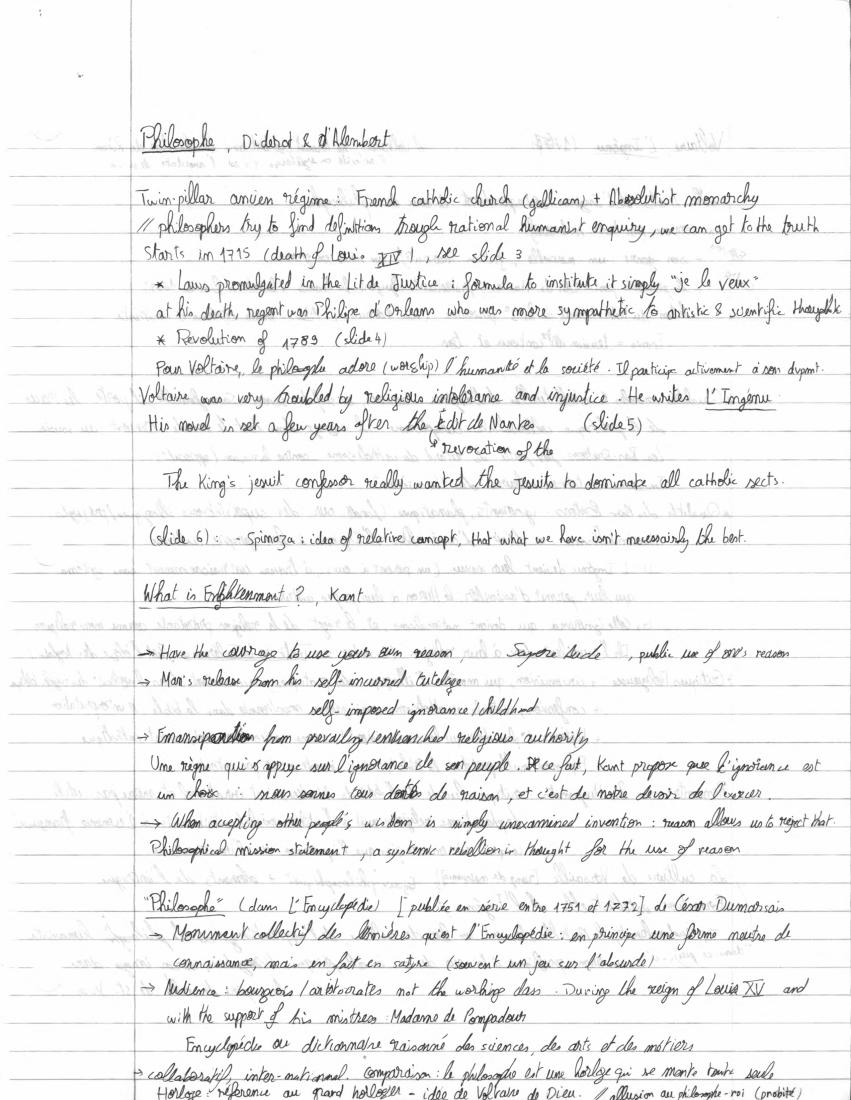 Philosophe, Diderot & d'Alembert
Twin-pillar ancien régime : French catholic church (gallican) + Absolutist monarchy
// philosophers try to find definitions trough rational humanist enquiry, we can get to the truth
Starts in 1715 (death of Louis XIV), see slide 3
* Laws promulgated in the Lit de Justice : formula to institute it simply "je le veux"
at his death, regent was Philipe d'Orleans who was more sympathetic to artistic & scientific thoughts
* Revolution of 1789 (slide 4)
Pour Voltaire, le philosophe adore (worship) l'humanité et la société. Il participe activement à son dvpmt.
Voltaire was very troubled by religious intolerance and injustice. He writes L'Ingénu
His novel is set a few years after the Edit de Nantes (slide 5)
revocation of the
The King's jesuit confessor really wanted the jesuits to dominate all catholic sects.
(slide 6) : - Spinoza : idea of relative concept, that what we have isn't necessairly the best.
What is Enlightenment ?, Kant
→ Have the courage to use your own reason, Sapere Aude, public use of one's reason
→ Man's release from his self-incurred tutelage
self-imposed ignorance/childhood
→ Emansipation from prevailing/entrenched religious authority
Une règne qui s'appuye sur l'ignorance de son peuple. De ce fait, Kant propose que l'ignorance est
un choix : nous sommes tous dotés de raison, et c'est de notre devoir de l'exercer.
→ When accepting other people's wisdom is simply unexamined invention : reason allows us to reject that.
Philosophical mission statement, a systemic rebellion in thought for the use of reason
"Philosophe" (dans L'Encyclopédie) [publiée en série entre 1751 et 1772] de César Dumarsais
→ Monument collectif des lumières qu'est l'Encyclopédie : en principe une forme neutre de
connaissance, mais en fait en satyre (souvent un jeu sur l'absurde)
→ Audience : bourgeois/aristocrates not the working class. During the reign of Louis XV and
with the support of his mistress Madame de Pompadour
Encyclopédie ou dictionnaire raisonné des sciences, des arts et des métiers
→ collaboratif, inter-national. comparaison : le philosophe est une horloge qui se monte toute seule
Horloge : référence au grand horloger - idée de Voltaire de Dieu. // allusion au philosophe-roi (probité)